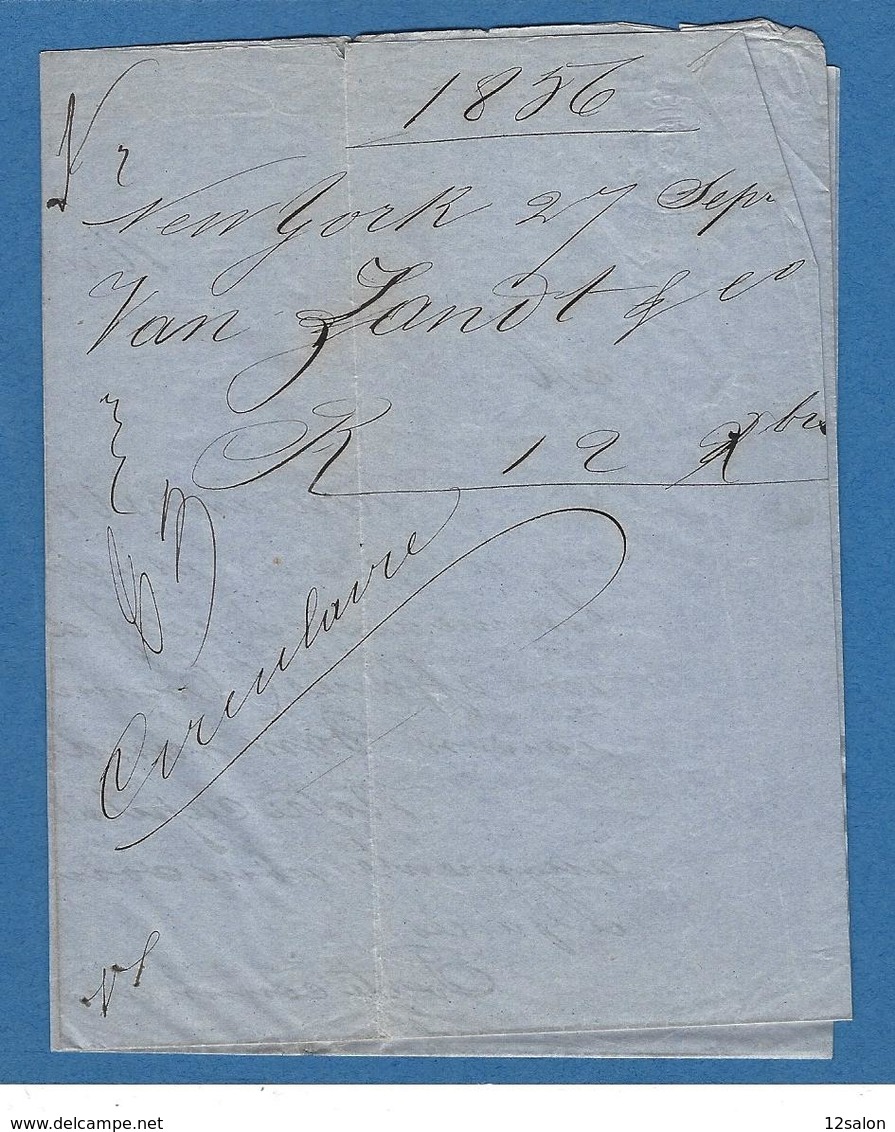 1856
Nr
New York 27 Sepr
Van Zandt & Co
R 12 Xbre
Circulaire
delcampe.net
12salon